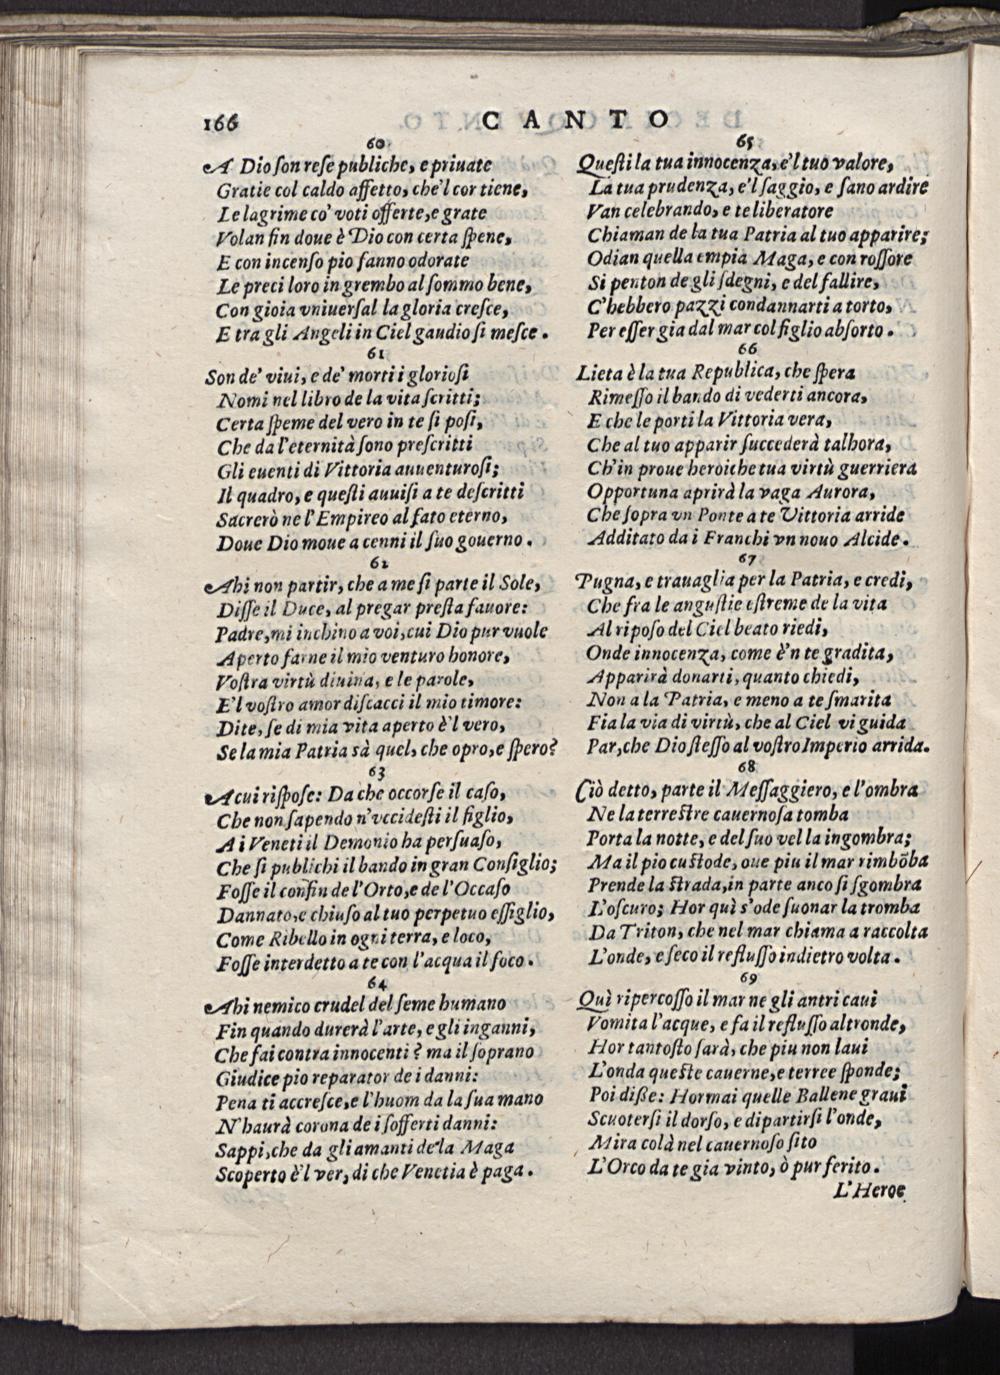 166 CANTO
60
A Dio ſon reſe publiche, e priuate
Gratie col caldo affetto, che'l cor tiene,
Le lagrime co' voti offerte, e grate
Volan fin doue è Dio con certa ſpene,
E con incenſo pio fanno odorate
Le preci loro in grembo al ſommo bene,
Con gioia vniuerſal la gloria creſce,
E tra gli Angeli in Ciel gaudio ſi meſce.
61
Son de' viui, e de' morti i glorioſi
Nomi nel libro de la vita ſcritti;
Certa ſpeme del vero in te ſi poſi,
Che da l'eternità ſono preſcritti
Gli euenti di Vittoria auuenturoſi;
Il quadro, e queſti auuiſi a te deſcritti
Sacrerò ne l'Empireo al fato eterno,
Doue Dio moue a cenni il ſuo gouerno.
62
Ahi non partir, che a me ſi parte il Sole,
Diſſe il Duce, al pregar preſta fauore:
Padre, mi inchino a voi, cui Dio pur vuole
Aperto farne il mio venturo honore,
Voſtra virtù diuina, e le parole,
E'l voſtro amor diſcacci il mio timore:
Dite, ſe di mia vita aperto è'l vero,
Se la mia Patria sà quel, che opro, e ſpero?
63
A cui riſpoſe: Da che occorſe il caſo,
Che non ſapendo n'vccideſti il figlio,
A i Veneti il Demonio ha perſuaſo,
Che ſi publichi il bando in gran Conſiglio;
Foſſe il confin de l'Orto, e de l'Occaſo
Dannato, e chiuſo al tuo perpetuo eſſiglio,
Come Ribello in ogni terra, e loco,
Foſſe interdetto a te con l'acqua il foco.
64
Ahi nemico crudel del ſeme humano
Fin quando durerà l'arte, e gli inganni,
Che fai contra innocenti? ma il ſoprano
Giudice pio reparator de i danni:
Pena ti accreſce, e l'huom da la ſua mano
N'haurà corona de i ſofferti danni:
Sappi, che da gli amanti de la Maga
Scoperto è'l ver, di che Venetia è paga.
65
Queſti la tua innocenza, e'l tuo valore,
La tua prudenza, e'l ſaggio, e ſano ardire
Van celebrando, e te liberatore
Chiaman de la tua Patria al tuo apparire;
Odian quella empia Maga, e con roſſore
Si penton de gli ſdegni, e del fallire,
C'hebbero pazzi condannarti a torto,
Per eſſer gia dal mar col figlio abſorto.
66
Lieta è la tua Republica, che ſpera
Rimeſſo il bando di vederti ancora,
E che le porti la Vittoria vera,
Che al tuo apparir ſuccederà talhora,
Ch'in proue heroiche tua virtù guerriera
Opportuna aprirà la vaga Aurora,
Che ſopra vn Ponte a te Vittoria arride
Additato da i Franchi vn nouo Alcide.
67
Pugna, e trauaglia per la Patria, e credi,
Che fra le anguſtie eſtreme de la vita
Al ripoſo del Ciel beato riedi,
Onde innocenza, come è'n te gradita,
Apparirà donarti, quanto chiedi,
Non a la Patria, e meno a te ſmarita
Fia la via di virtù, che al Ciel vi guida
Par, che Dio ſteſſo al voſtro Imperio arrida.
68
Ciò detto, parte il Meſſaggiero, e l'ombra
Ne la terreſtre cauernoſa tomba
Porta la notte, e del ſuo vel la ingombra;
Ma il pio cuſtode, oue piu il mar rimbõba
Prende la ſtrada, in parte anco ſi ſgombra
L'oſcuro; Hor quì s'ode ſuonar la tromba
Da Triton, che nel mar chiama a raccolta
L'onde, e ſeco il refluſſo indietro volta.
69
Quì ripercoſſo il mar ne gli antri caui
Vomita l'acque, e fa il refluſſo altronde,
Hor tantoſto ſarà, che piu non laui
L'onda queſte cauerne, e terree ſponde;
Poi diße: Hormai quelle Ballene graui
Scuoterſi il dorſo, e dipartirſi l'onde,
Mira colà nel cauernoſo ſito
L'Orco da te gia vinto, ò pur ferito.
L'Heroe